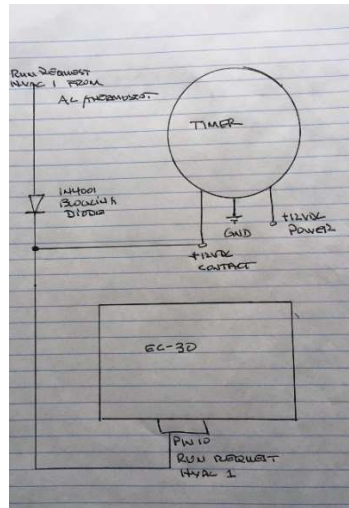 RUN REQUEST
HVAC 1 FROM
AC/THERMOSTAT
TIMER
1N4001
BLOCKING
DIODE
GND
+12VDC
POWER
+12VDC
CONTACT
EC-30
PIN 10
RUN REQUEST
HVAC 1